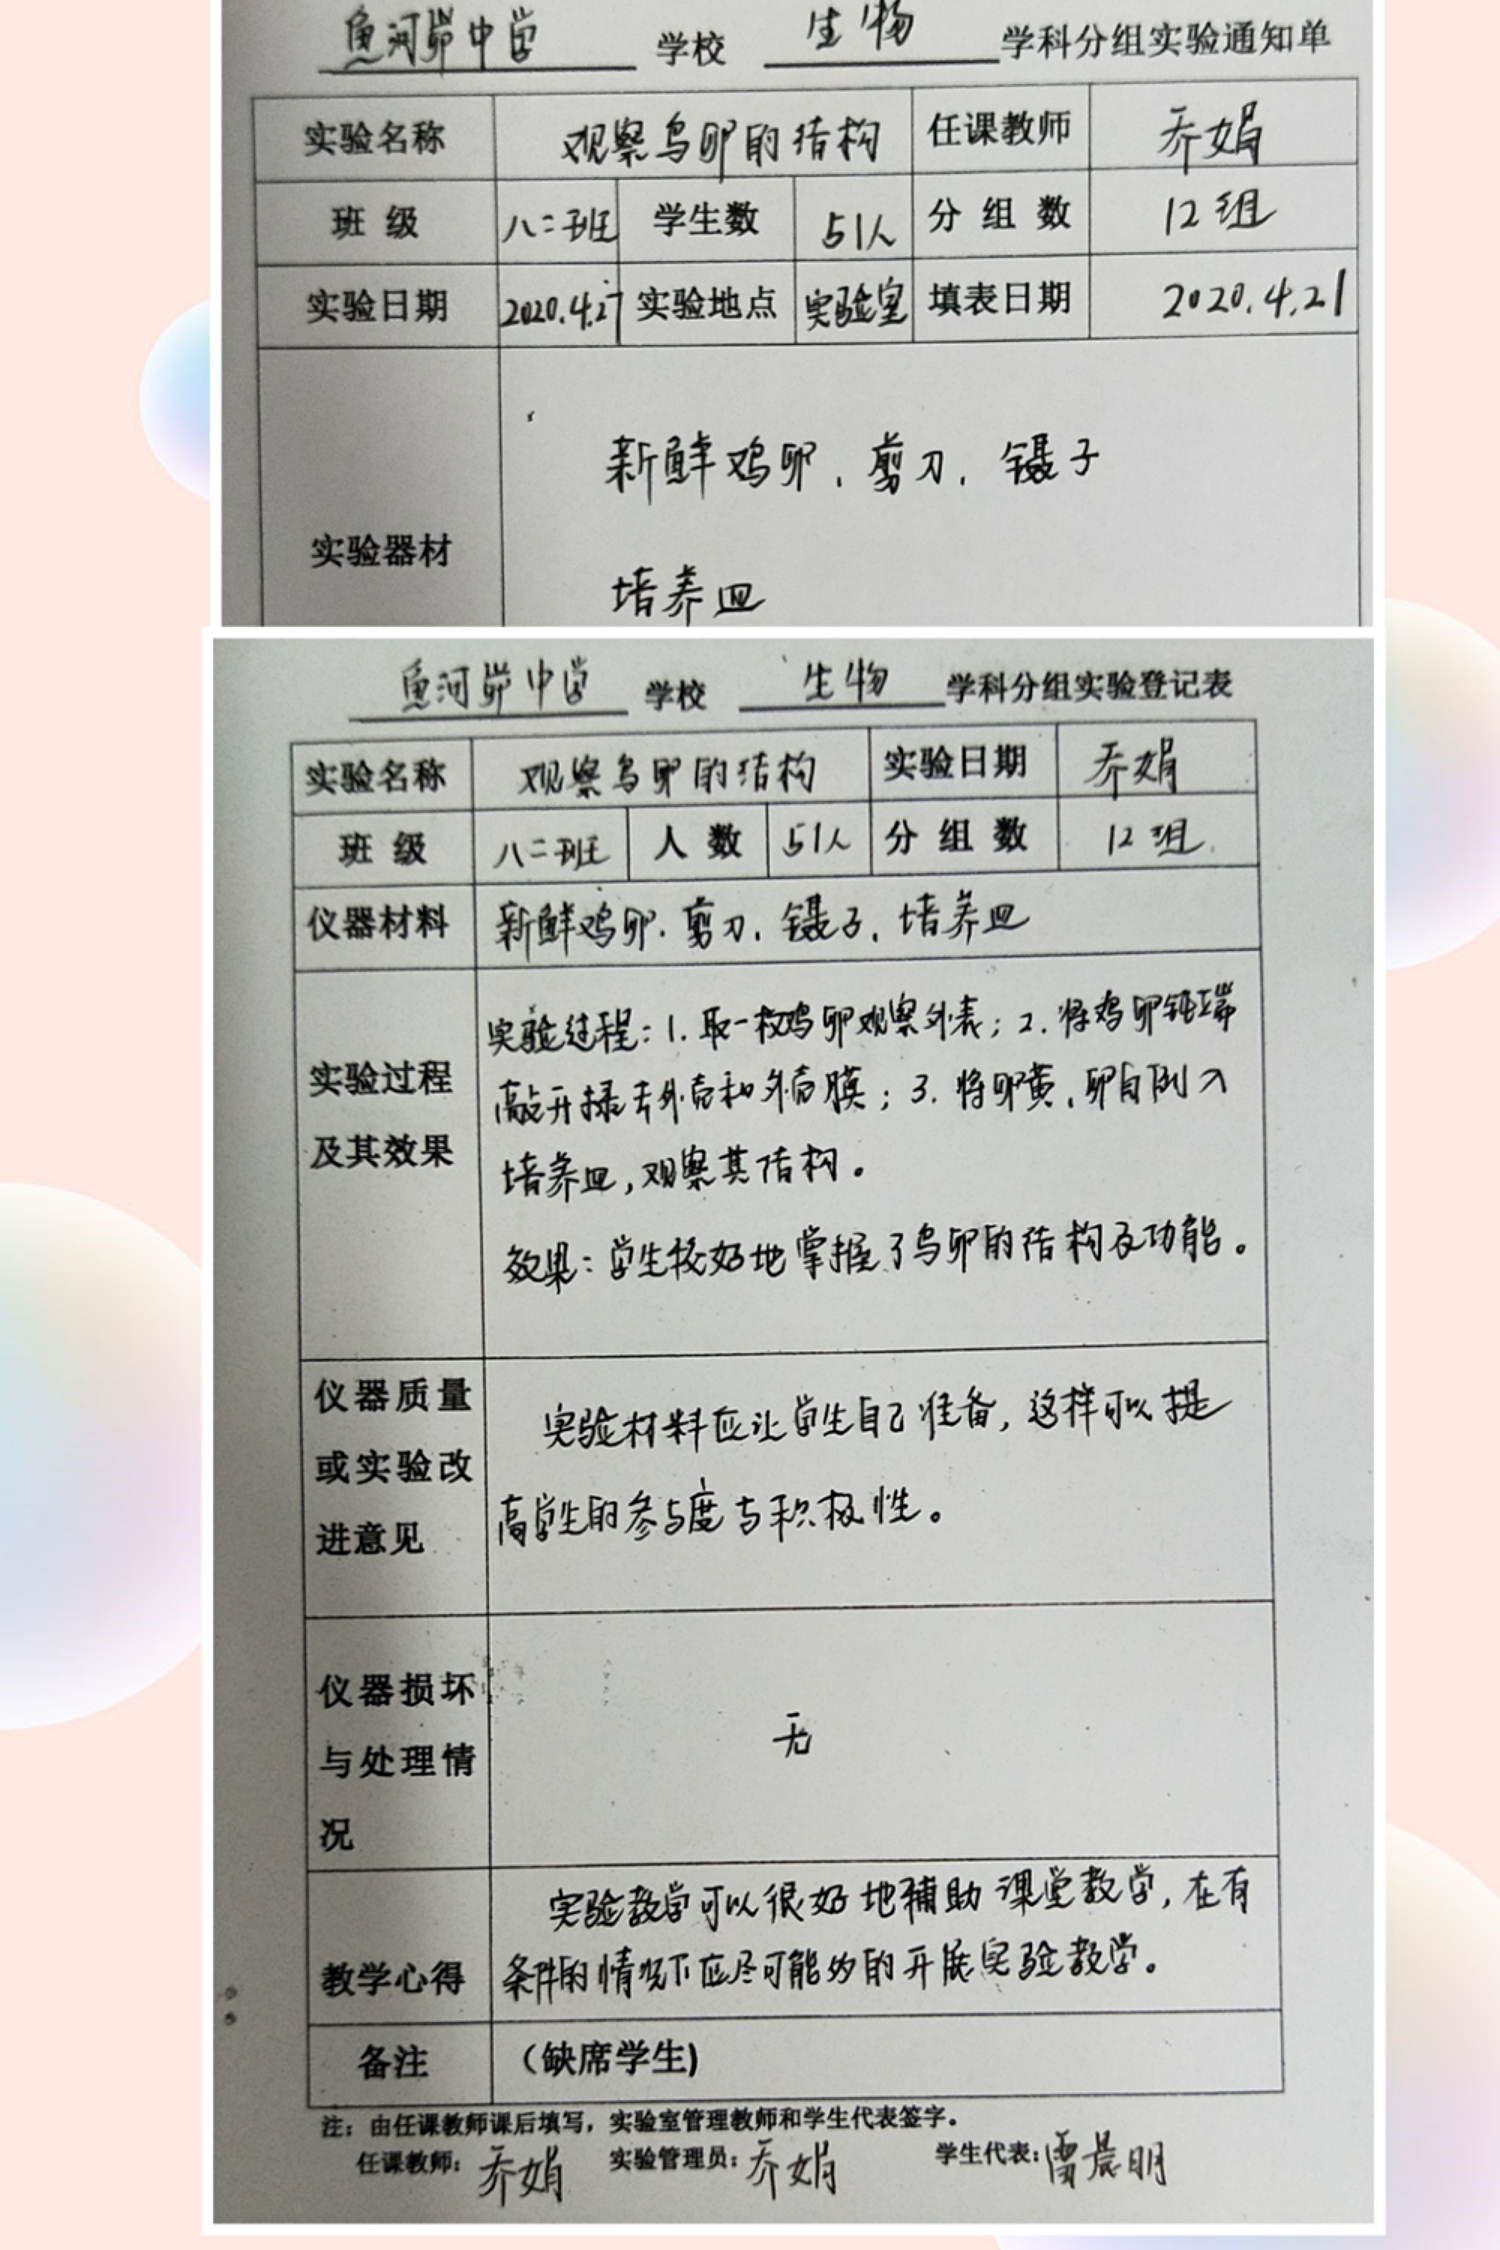 鱼河峁中学 学校 生物 学科分组实验通知单
实验名称 观察鸟卵的结构 任课教师 乔娟
班 级 八二班 学生数 51人 分 组 数 12组
实验日期 2020.4.27 实验地点 实验室 填表日期 2020.4.21
实验器材
新鲜鸡卵、剪刀、镊子
培养皿
鱼河峁中学 学校 生物 学科分组实验登记表
实验名称 观察鸟卵的结构 实验日期 乔娟
班 级 八二班 人 数 51人 分 组 数 12组
仪器材料 新鲜鸡卵、剪刀、镊子、培养皿
实验过程
及其效果
实验过程:1.取一枚鸡卵观察外表;2.将鸡卵钝端
敲开掾去外壳和外壳膜;3.将卵黄、卵白倒入
培养皿,观察其结构。
效果:学生较好地掌握了鸟卵的结构及功能。
仪器质量
或实验改
进意见
实验材料应让学生自己准备,这样可以提
高学生的参与度与积极性。
仪器损坏
与处理情
况
无
教学心得
实验教学可以很好地辅助课堂教学,在有
条件的情况下应尽可能多的开展实验教学。
备注 (缺席学生)
注:由任课教师课后填写,实验室管理教师和学生代表签字。
任课教师:乔娟 实验管理员:乔娟 学生代表:雷晨明